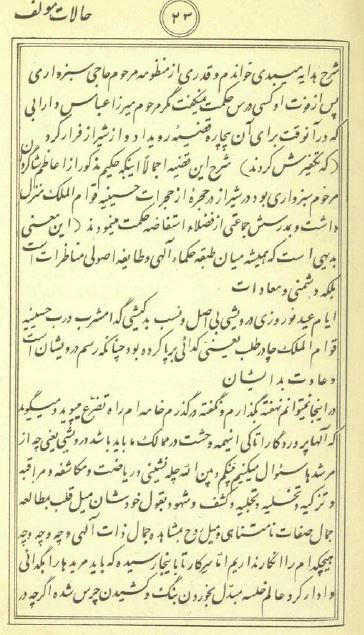 حالات مؤلف
۲۳
شرح هدایه میبدی خواندم و قدری از منظومه مرحوم حاجی سبزواری
پس از فوت او کسی درس حکمت نمیگفت مگر مرحوم میرزا عباس دارابی
که در آنوقت برای آن بیچاره قضیهٔ روی داد و از شیراز فرار کرد
(که تکفیرش کردند) شرح این قضیه اجمالاً اینکه حکیم مذکور از اعاظم شاگردان
مرحوم سبزواری بود در شیراز در حجرهٔ از حجرات حسینیه قوام الملک منزل
داشت و بدرسش جماعتی از فضلاء استفاضه حکمت مینمودند (این معنی
بدیهی است که همیشه میان طبقه حکماء آلهی و طایفه اصولی مناظرات است
بلکه دشمنی و معادات
ایام عید نوروزی درویشی بی اصل و نسب بدکیشی گدا مشرب درب حسینیه
قوام الملک چادر طلب یعنی گدائی برپا کرده بود چنانکه رسم درویشان است
و عادت بد ایشان
در اینجا نمیتوانم نهفته بگذارم و نگفته درگذرم خامه ام راه تضرع میپوید و میگوید
که آلها پروردگارا تا کی اینهمه وحشت در ممالک ما باید باشد درویشی یعنی چه از
مرشدها سئوال میکنیم میگویند من الله چله نشینی و ریاضت و مکاشفه و مراقبه
و تزکیه و تخلیه و تجلیه و کشف و شهود بقول خودشان میل قلب بمطالعه
جمال صفات نامتناهی و میل روح بمشاهده جمال ذات آلهی و چه و چه و چه
هیچکدام را انکار نداریم اما سرکار تا باینجا رسیده که باید مریدها را بگدائی
وادار کرد عالم خلسه مبدّل بخوردن بنگ و کشیدن چرس شده اگرچه در